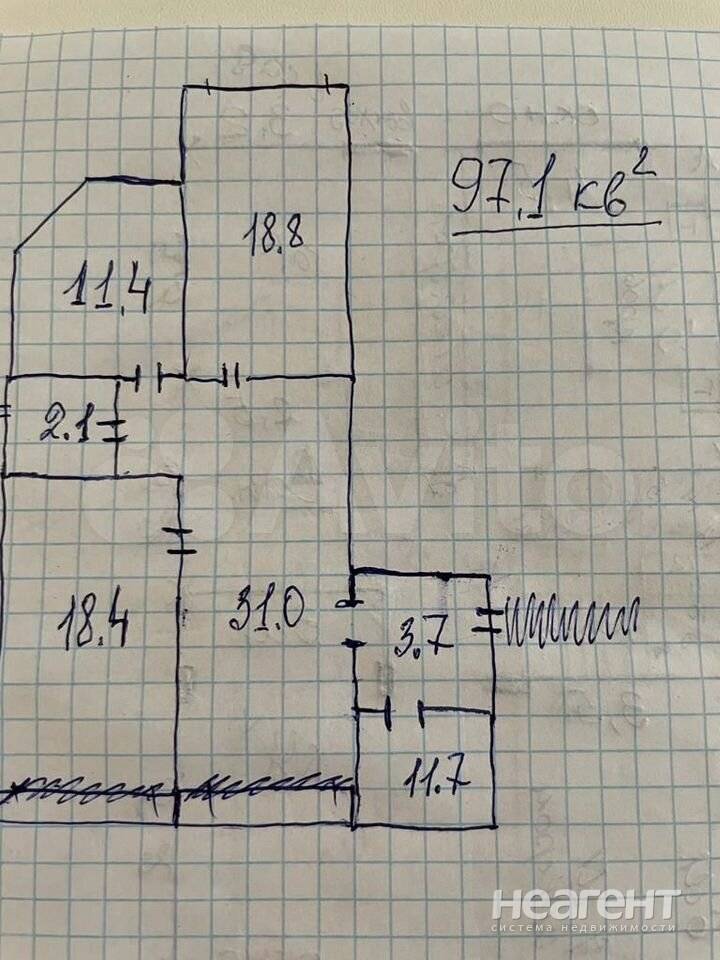 97,1 кв²
18.8
11.4
2.1
18.4
31.0
3.7
11.7
Avito
неагент
система недвижимости